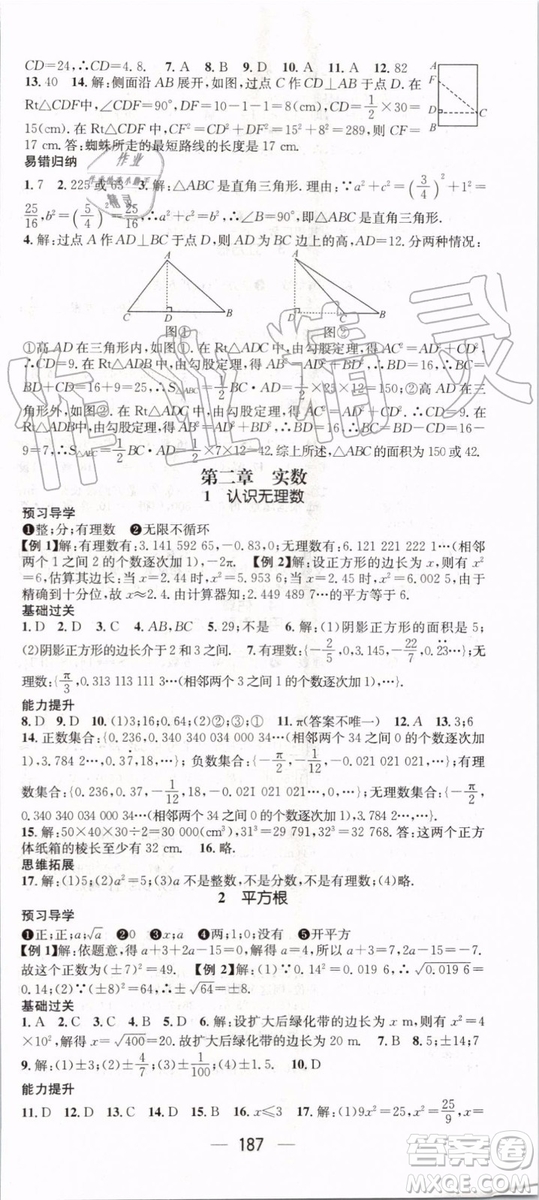 CD=24,∴CD=4.8. 7.A 8.B 9.D 10.A 11.A 12.82
13.40 14.解:侧面沿 AB 展开,如图,过点 C 作 CD⊥AB 于点 D. 在
Rt△CDF 中,∠CDF=90°,DF=10-1-1=8(cm),CD=1/2×30=
15(cm). 在 Rt△CDF 中,CF²=CD²+DF²=15²+8²=289,∴CF=
17 cm. ∴蜘蛛所走的最短路线的长度是 17 cm.
A
F
D
C
B
易错归纳
1.7 2.225或 63 解:△ABC 是直角三角形. 理由:∵a²+c²=(3/4)²+1²=
25/16,b²=(5/4)²=25/16,∴a²+c²=b². ∴△ABC 是直角三角形.
4.解:过点 A 作 AD⊥BC 于点 D. ∵AD 为 BC 边上的高,AD=12. 分两种情况:
A A
C D B D C B
图① 图②
①高 AD 在三角形内,如图①,在 Rt△ADC 中,由勾股定理,得 AC²=AD²+
DC²,∴DC=16. 在 Rt△ADB 中,由勾股定理,得 AB²=AD²+BD²,∴BD=9. ∴BC=
BD+DC=16+9=25. ∴S△ABC=1/2BC·AD=1/2×25×12=150;②高 AD 在三
角形外,如图②,在 Rt△ADC 中,由勾股定理,得 AC²=AD²+DC²,∴DC=16.
在 Rt△ADB 中,由勾股定理,得 AB²=AD²+BD²,∴BD=9. ∴BC=DC-BD=16-
9=7. ∴S△ABC=1/2BC·AD=1/2×7×12=42. 综上所述,△ABC 的面积是 150 或 42.
第二章 实数
1 认识无理数
预习导学
❶整;分;有理数 ❷无限不循环
【例 1】解:有理数有:3.141 592 65,-0.321 321 321…;无理数有:6.121 221 222 1…(相邻
两个 1 之间 2 的个数逐次加 1),-2π. 【例 2】解:设正方形的边长为 x,则 x²=
6,估算其算结果:当 x=2.44 时,x²=5.953 6;当 x=2.45 时,x²=6.002 5,由于
精确到十分位,故 x≈2.4. 由计算器知:2.449 489 7²的值近似等于6.
基础过关
1.D 2.D 3.C 4.AB,BC 5.29;不是 7.解:(1)阴影正方形的面积=5;
(2)阴影正方形的边长介于 2 和 3 之间. 7.有理数集合:{-2/5,0.3,22/7,…},无理数集
合:{π/3,0.313 113 111 3…(相邻两个 3 之间 1 的个数逐次加 1)…}
能力提升
8.D 9.D 10.(1)3;16;0.64;(2)②;③;①;④ 11.π(答案不唯一) 12.A 13.3;6
14.正数集合:{0.236,0.340 340 034 000 34…(相邻两个 34 之间 0 的个数逐次加
1),3.784 2…,0.1,18,…};负数集合:{-π/2,-0.021 021 021…,-1/3,…};有理
数集合:{0.236,-0.021 021 021…,18,-1/3,0,…};无理数集合:{-π/2,
0.340 340 034 000 34…(相邻两个 34 之间 0 的个数逐次加 1),3.784 2…,…}
15.解:50×40×30÷2=30 000(cm³),31³=29 791,32³=32 768. 答:这两个正方
体纸箱的棱长至少有 32 cm. 16.略.
思维拓展
17.解:(1)5;(2)a²=5;(3)a 不是整数,不是分数,不是有理数;(4)略.
2 平方根
预习导学
❶正;正;a;√a ❷0 ❸x;a ❹两;1;0;没有 ❺开平方
【例 1】解:依题意,得 a+3+2a-15=0,解得 a=4. 所以 a+3=7,2a-15=-7.
故这个正数为(±7)²=49. 【例 2】解:(1)∵0.14²=0.019 6,∴√0.019 6=
0.14;(2)∵(±8)²=64,∴±√64=±8.
基础过关
1.A 2.B 3.B 4.C 5.B 6.2 7.解:设扩大后绿化带的边长为 x m,则 x²=4
×10²,解得 x=√400=20. 故扩大后绿化带的边长为 20 m. 8.C
9.解:(1)±3;(2)±4/7;(3)±1/100 10.D
能力提升
11.D 12.D 13.A 14.B 15.±2 16.x≤3 17.解:(1)9x²=25,x²=25/9,x=
187
作业精灵
答案圈